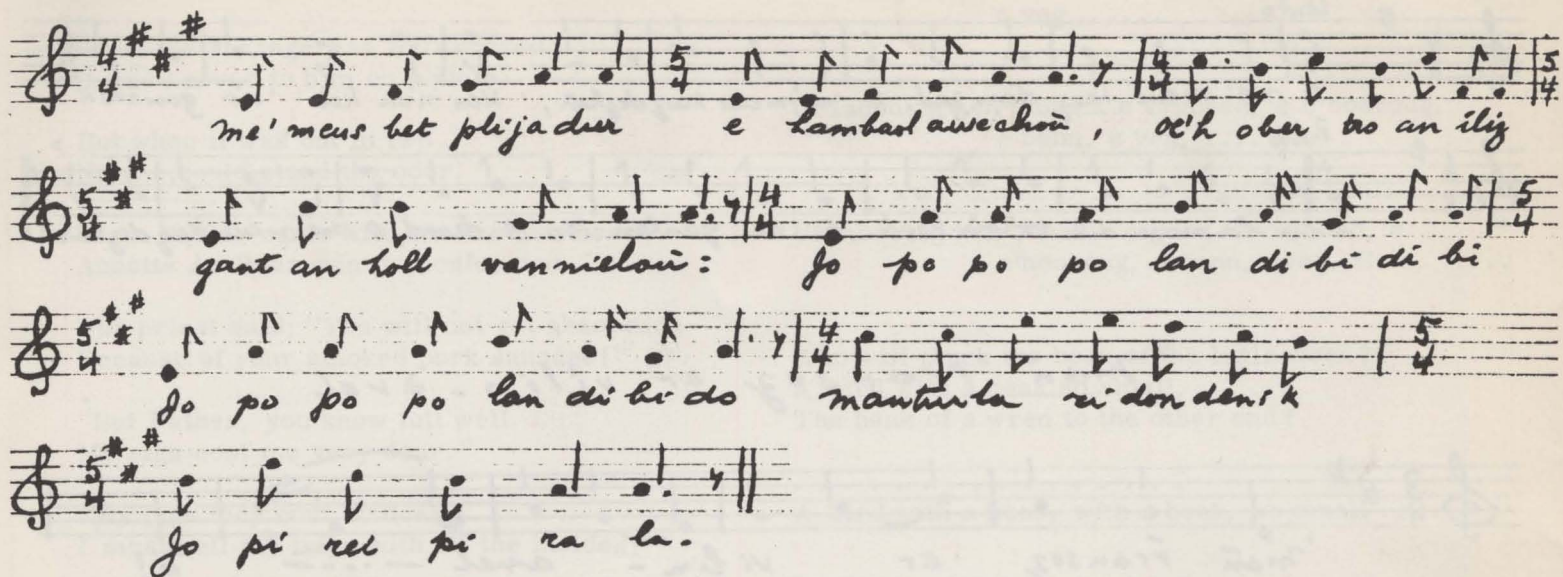 me' meus bet plijadur e hambaol awechoù, oc'h ober tro an iliz
gant an holl vannieloù: Jo po po po lan di bi di bi
Jo po po po po lan di bi do mantur la ri don denik
Jo pi rel pi ra la.